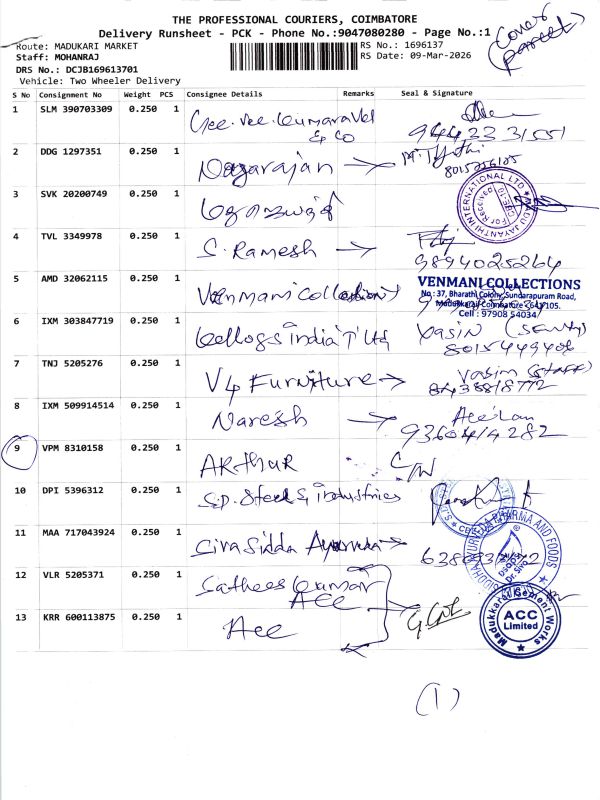 THE PROFESSIONAL COURIERS, COIMBATORE
Delivery Runsheet - PCK - Phone No.:9047080280 - Page No.:1
Cover
parcel
Route: MADUKARI MARKET
RS No.: 1696137
Staff: MOHANRAJ
RS Date: 09-Mar-2026
DRS No.: DCJB169613701
Vehicle: Two Wheeler Delivery
S No Consignment No Weight PCS Consignee Details Remarks Seal & Signature
1 SLM 390703309 0.250 1 Gee.Vee.Kumaravel
& Co
2 DDG 1297351 0.250 1 Nagarajan
3 SVK 20200749 0.250 1
JAYANTHI INTERNATIONAL LTD
For Received
4 TVL 3349978 0.250 1 S. Ramesh
9894025264
VENMANI COLLECTIONS
5 AMD 32062115 0.250 1 Venmani Collection
No : 37, Bharathi Colony, Sundarapuram Road,
Madukkarai, Coimbatore - 641 105.
Cell : 97908 54034
6 IXM 303847719 0.250 1 Kellogs India P Ltd Yasin
8015449406
7 TNJ 5205276 0.250 1 V4 Furniture Yasin (Staff)
8 IXM 509914514 0.250 1 Naresh
9360414282
9 VPM 8310158 0.250 1 ARthur
10 DPI 5396312 0.250 1 S.D. Steels industries
11 MAA 717043924 0.250 1 Siva Sidda
PHARMA AND FOODS
Dr. Siva
12 VLR 5205371 0.250 1 Sathees Kumar
ACC
13 KRR 600113875 0.250 1 Acc
Madukkarai Cement Works
ACC
Limited
(1)